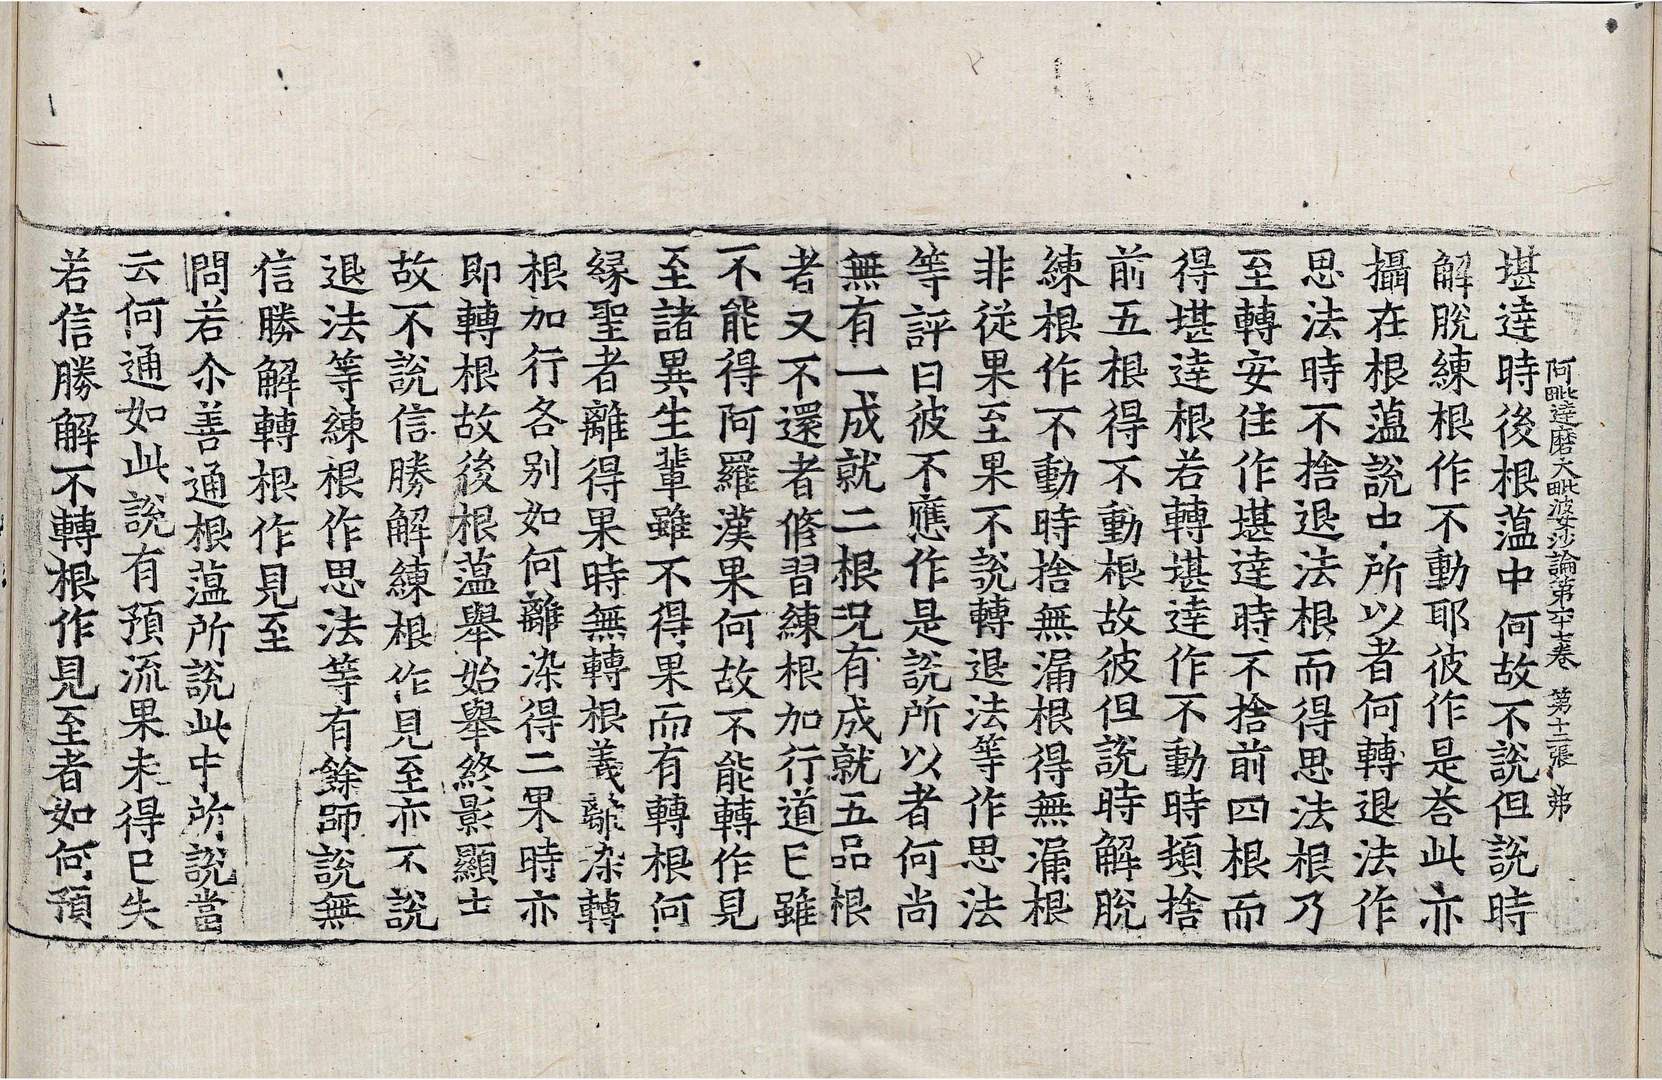 阿毗達磨大毗婆沙論第六十七卷 第十二張 弟
堪達時後根蘊中何故不說但說時
解脫練根作不動耶彼作是荅此亦
攝在根蘊說中所以者何轉退法作
思法時不捨退法根而得思法根乃
至轉安住作堪達時不捨前四根而
得堪達根若轉堪達作不動時頓捨
前五根得不動根故彼但說時解脫
練根作不動時捨無漏根得無漏根
非從果至果不說轉退法等作思法
等評曰彼不應作是說所以者何尚
無有一成就二根況有成就五品根
者又不還者修習練根加行道已雖
不能得阿羅漢果何故不能轉作見
至諸異生輩雖不得果而有轉根何
緣聖者離得果時無轉根義離染轉
根加行各別如何離染得二果時亦
即轉根故後根蘊舉始舉終影顯士
故不說信勝解練根作見至亦不說
退法等練根作思法等有餘師說無
信勝解轉根作見至
問若尒善通根蘊所說此中所說當
云何通如此說有預流果未得已失
若信勝解不轉根作見至者如何預